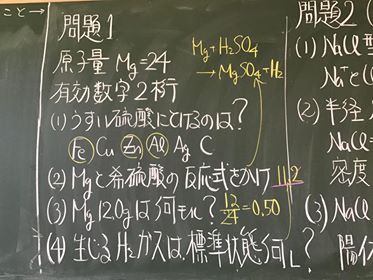 こと→
問題1
原子量 Mg=24
有効数字2桁
Mg+H2SO4
→MgSO4+H2
(1)うすい硫酸にとけるのは?
Fe Cu Zn Al Ag C
(2)Mgと希硫酸の反応式をかけ 11.2
(3)Mg 12.0gは何モル? 12/24=0.50
(4)生じるH2ガスは、標準状態何L?
問題2(
(1) NaCl型
Na+とCl
(2) 半径
NaCl=
密度
(3) NaCl
陽イ